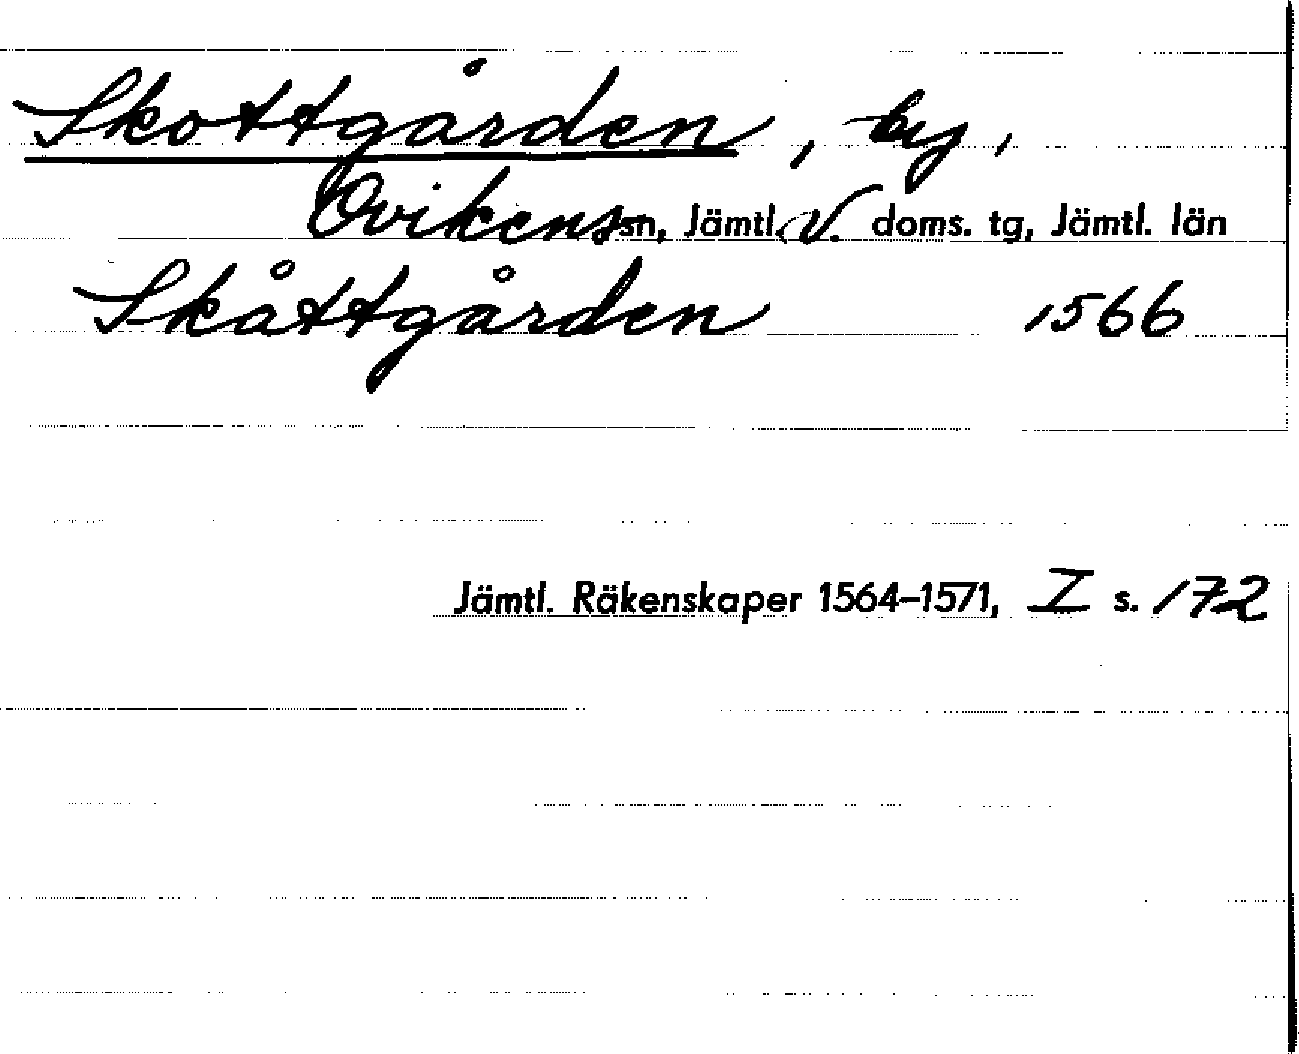 Skottgården, by,
Ovikens sn, Jämtl. V. doms. tg, Jämtl. län
Skåttgården 1566
Jämtl. Räkenskaper 1564–1571, I s. 172